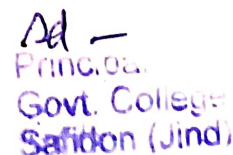 Sd —
Principal
Govt. College
Safidon (Jind)